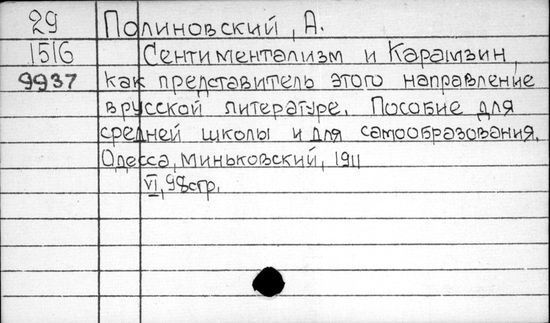 29 Полиновский, А.
1516 Сентиментализм и Карамзин,
9937 как представитель этого направление
в русской литературе. Пособие для
средней школы и для самообразования.
Одесса, Миньковский, 1911
VI, 98стр.